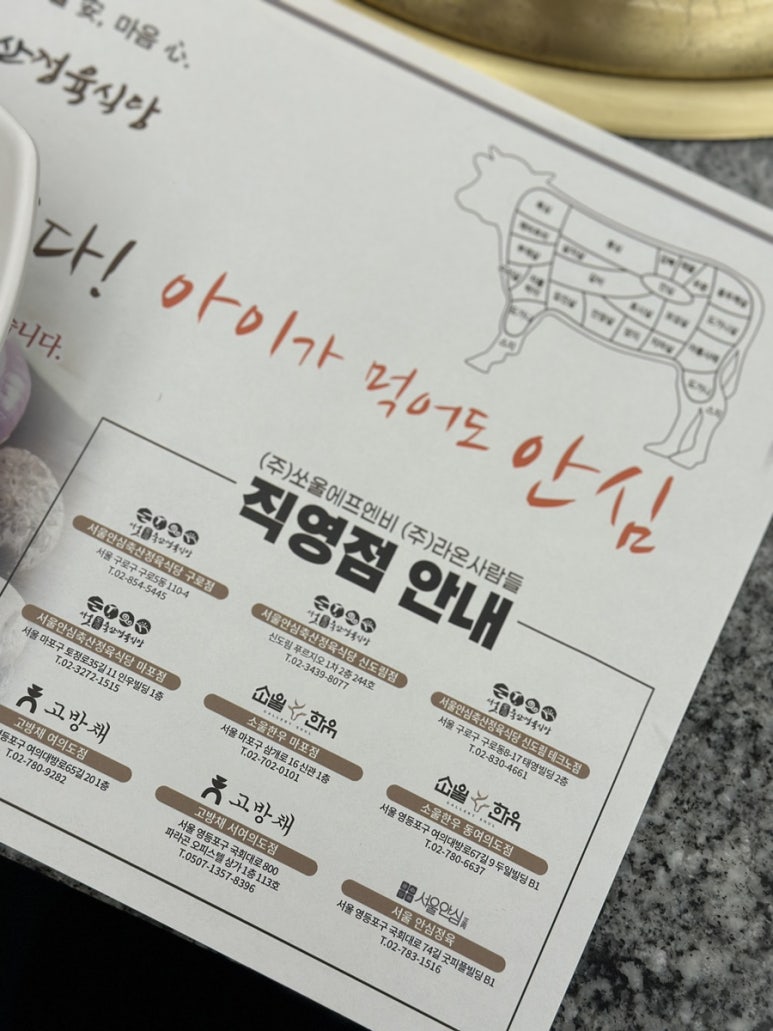 安, 마음 心.
산정육식당
다!
습니다.
아이가 먹어도 안심
(주)쏘울에프엔비 (주)라온사람들
직영점 안내
서울안심축산정육식당 구로점
서울 구로구 구로5동 110-4
T.02-854-5445
서울안심축산정육식당 신도림점
신도림 푸르지오 1차 2층 244호
T.02-3439-8077
서울안심축산정육식당 신도림 테크노점
서울 구로구 구로동8-17 태영빌딩 2층
T.02-830-4661
서울안심축산정육식당 마포점
서울 마포구 토정로35길 11 인우빌딩 1층
T.02-3272-1515
소울한우
소울한우 마포점
서울 마포구 삼개로 16 신관 1층
T.02-702-0101
소울한우
소울한우 동여의도점
서울 영등포구 여의대방로67길 9 두일빌딩 B1
T.02-780-6637
고방채
고방채 여의도점
영등포구 여의대방로65길 20 1층
T.02-780-9282
고방채
고방채 서여의도점
서울 영등포구 국회대로 800
파라곤 오피스텔 상가 1층 113호
T.0507-1357-8396
서울안심
서울 안심정육
서울 영등포구 국회대로 74길 굿피플빌딩 B1
T.02-783-1516